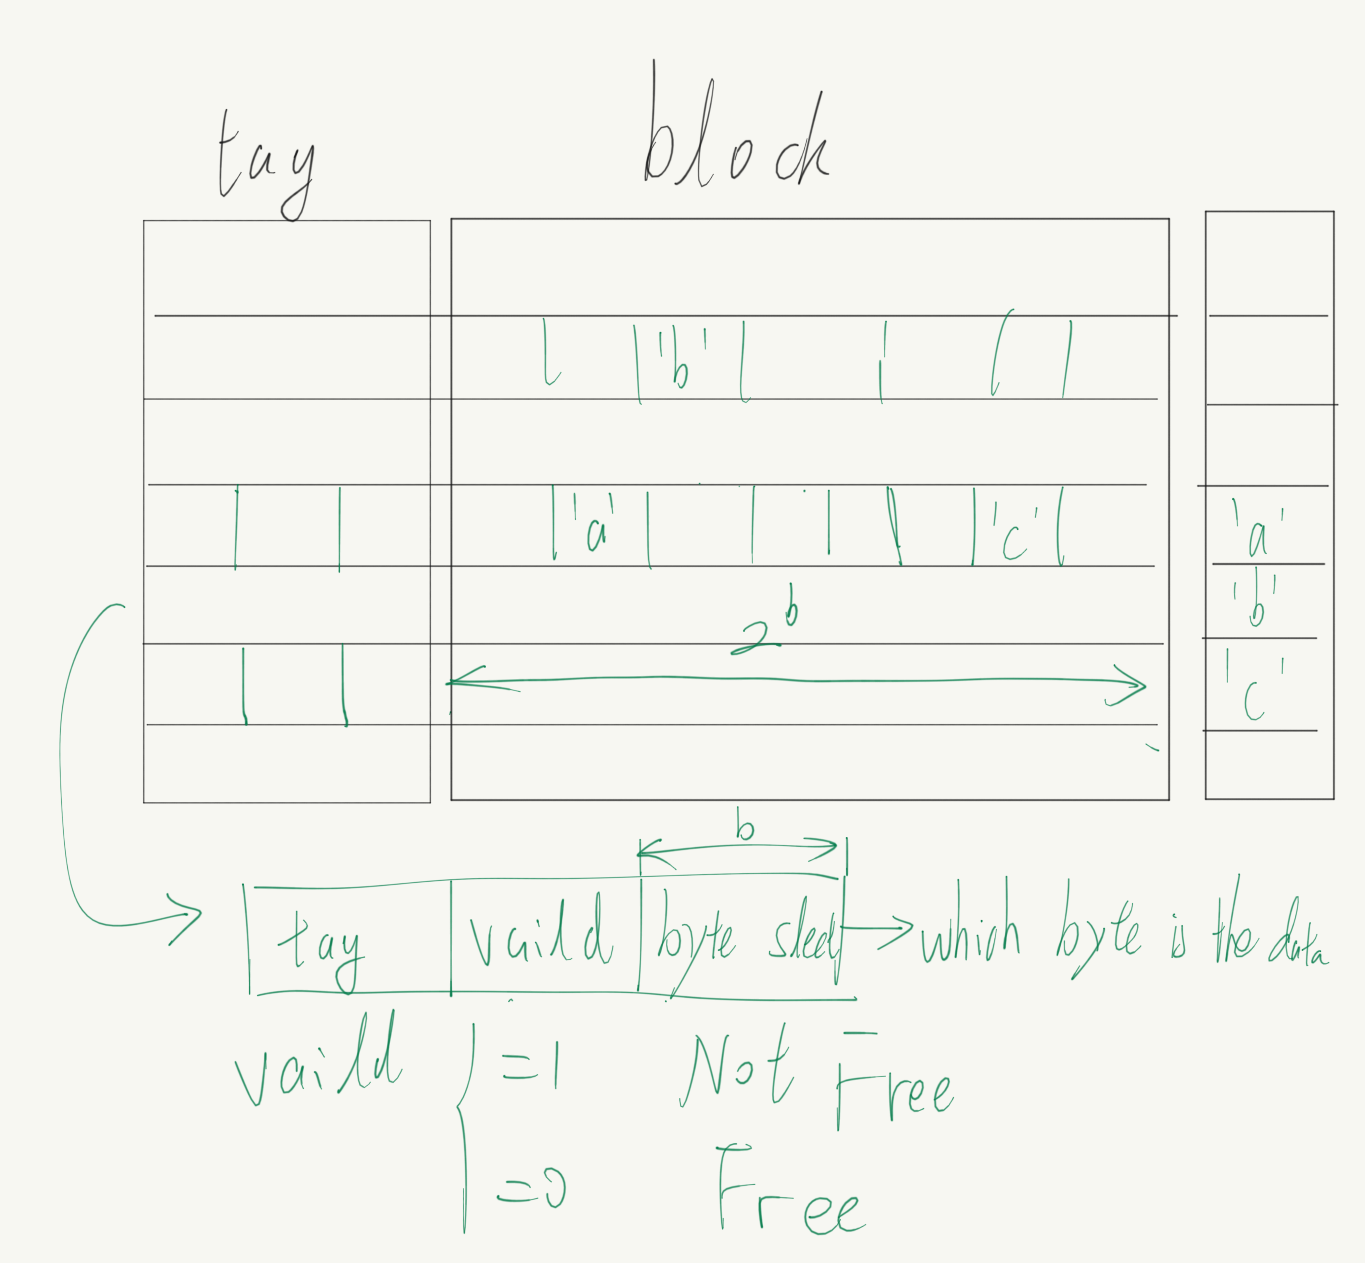 tay block
'b'
'a' 'c' 'a'
2^b 'b'
'c'
b
tay vaild byte which byte is the data
vaild =1 Not Free
=0 Free